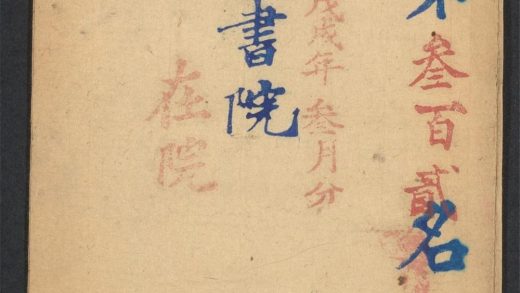 叁百貳名
戊戌年叁月分
書院
在院